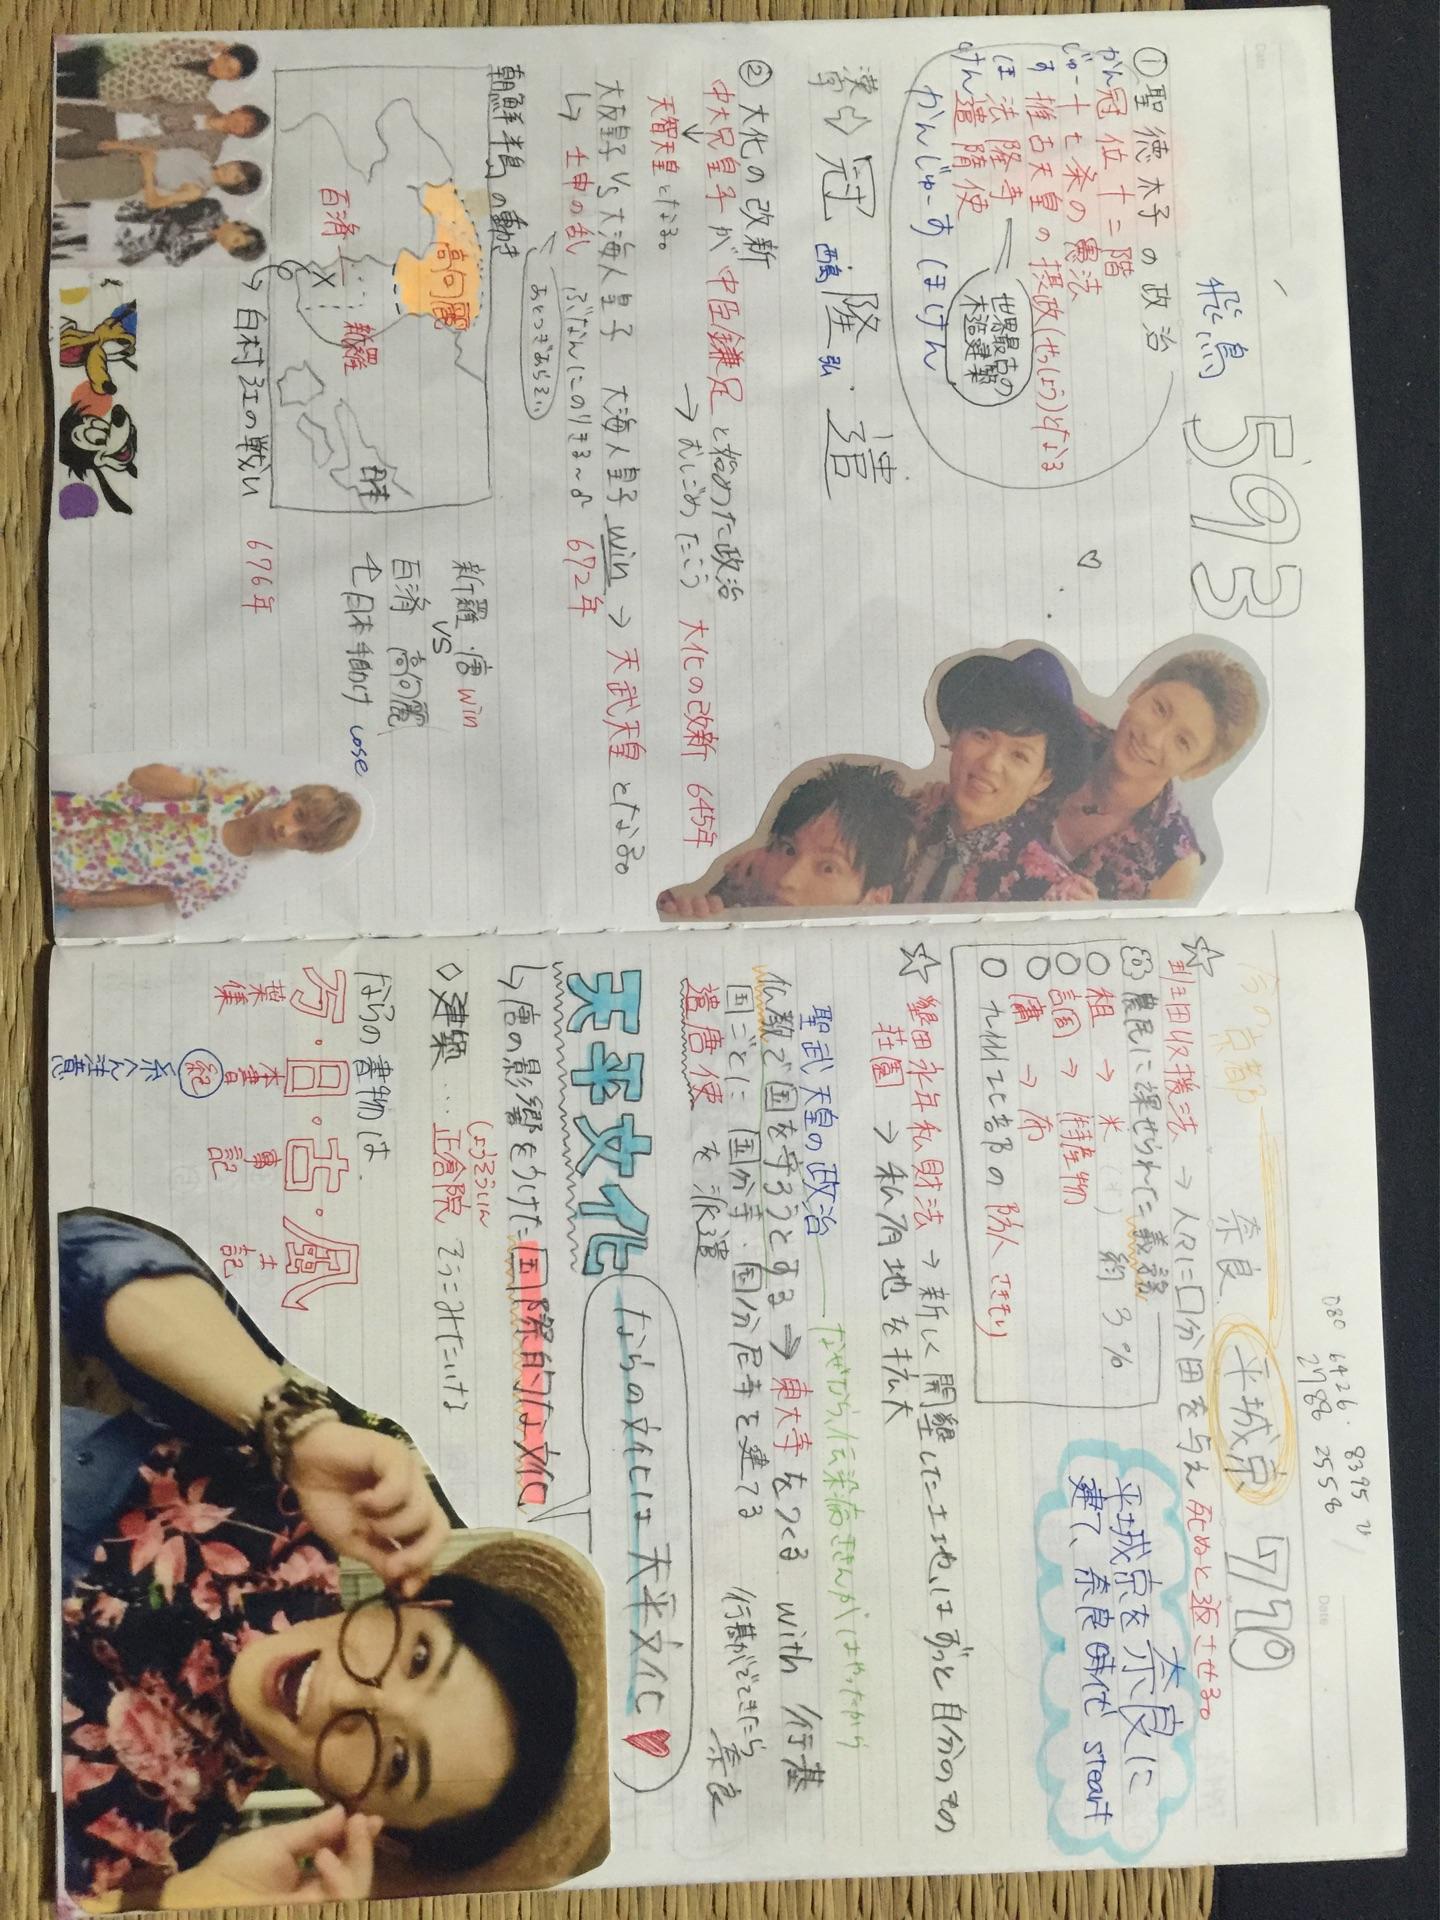 飛鳥 593
①聖徳太子の政治
かん冠位十二階
じゅー十七条の憲法
す 推古天皇の摂政(せっしょう)となる
ほ 法隆寺
世界最古の
木造建築
けん遣隋使
かんじゅーすほけん
漢字 冠 隆 遣
②大化の改新
中大兄皇子が中臣鎌足と始めた政治
↓
天智天皇となる。
→むしごめたこう 大化の改新 645年
大友皇子 VS 大海人皇子 大海人皇子 win → 天武天皇となる。
↳ 壬申の乱 ぶなんにのりきる〜♪ 672年
あとつぎあらそい
朝鮮半島の動き
高句麗
百済
新羅
日本
新羅・唐 win
VS
百済 高句麗
日本手助け lose
↳白村江の戦い 676年
080 6426. 8395
2788 2558
Date
今の京都
奈良 平城京 710
☆ 班田収授法 → 人々に口分田を与え死ぬと返させる。
農民に課せられた義務
○租 → 米 約3%
○調 → 特産物
○庸 → 布
○九州北部の防人 さきもり
平城京を奈良に
建て、奈良時代 steart
☆ 墾田永年私財法 → 新しく開墾した土地はずっと自分のもの
荘園 → 私有地を拡大
聖武天皇の政治
なぜから伝染病ききんがはやったから
仏教で国を守ろうとする → 東大寺をつくる with 行基
国ごとに国分寺・国分尼寺を建てる
行基がでてきたら
奈良
遣唐使を派遣
天平文化
ならの文化は天平文化
↳唐の影響をうけた国際的な文化
◇建築… 正倉院 そうこみたいける
しょうそういん
ならの書物は
万・日・古・風
葉集
本書紀
事記
土記
糸へん注意